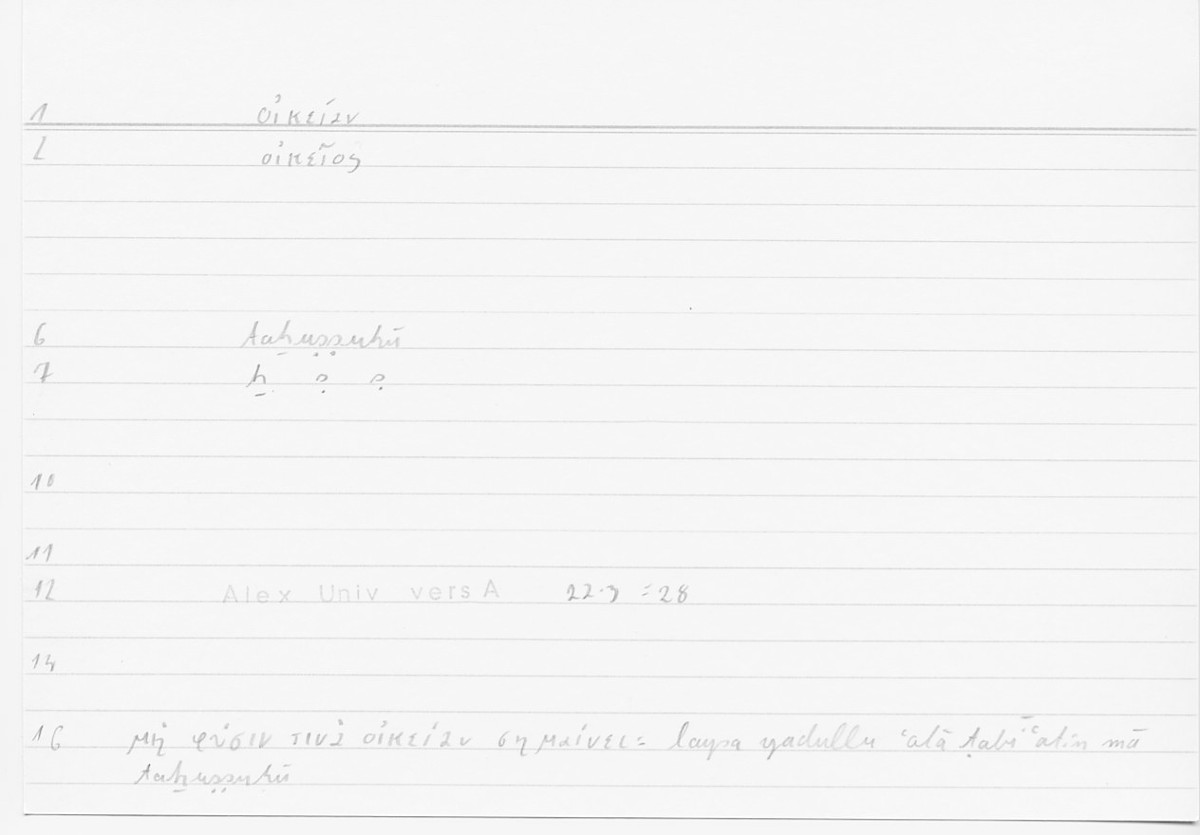 1 οἰκείαν
2 οἰκεῖος
6 taḫuṣṣuhū
7 ḫ ṣ ṣ
10
11
12 Alex Univ vers A 22.3 = 28
14
16 μὴ φύσιν τινὰ οἰκείαν σημαίνει = laysa yadullu ʿalā ṭabīʿatin mā
taḫuṣṣuhū